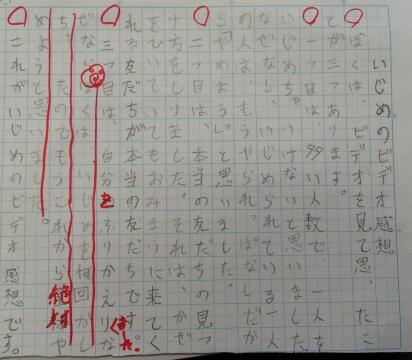 いじめのビデオ感想
ぼくは、ビデオを見て思ったこ
とが三つあります。
一つ目は、多い人数で一人を
いじめちゃいけないと思いました。
なぜなら、いじめられる一人
の人は、もうやられっぱなしだか
らやめよう。と思いました。
二つ目は、本当の友だちの見つ
け方をしりました。それはかぜ
をひいていてもおみまいに来てく
れる友だちが本当の友だちです。
三つ目は、自分をふりかえりな
ぜならぼくはいじめを何回かし
ちゃったのでもうこれから絶対や
めようと思いました。
これがいじめのビデオ感想です。